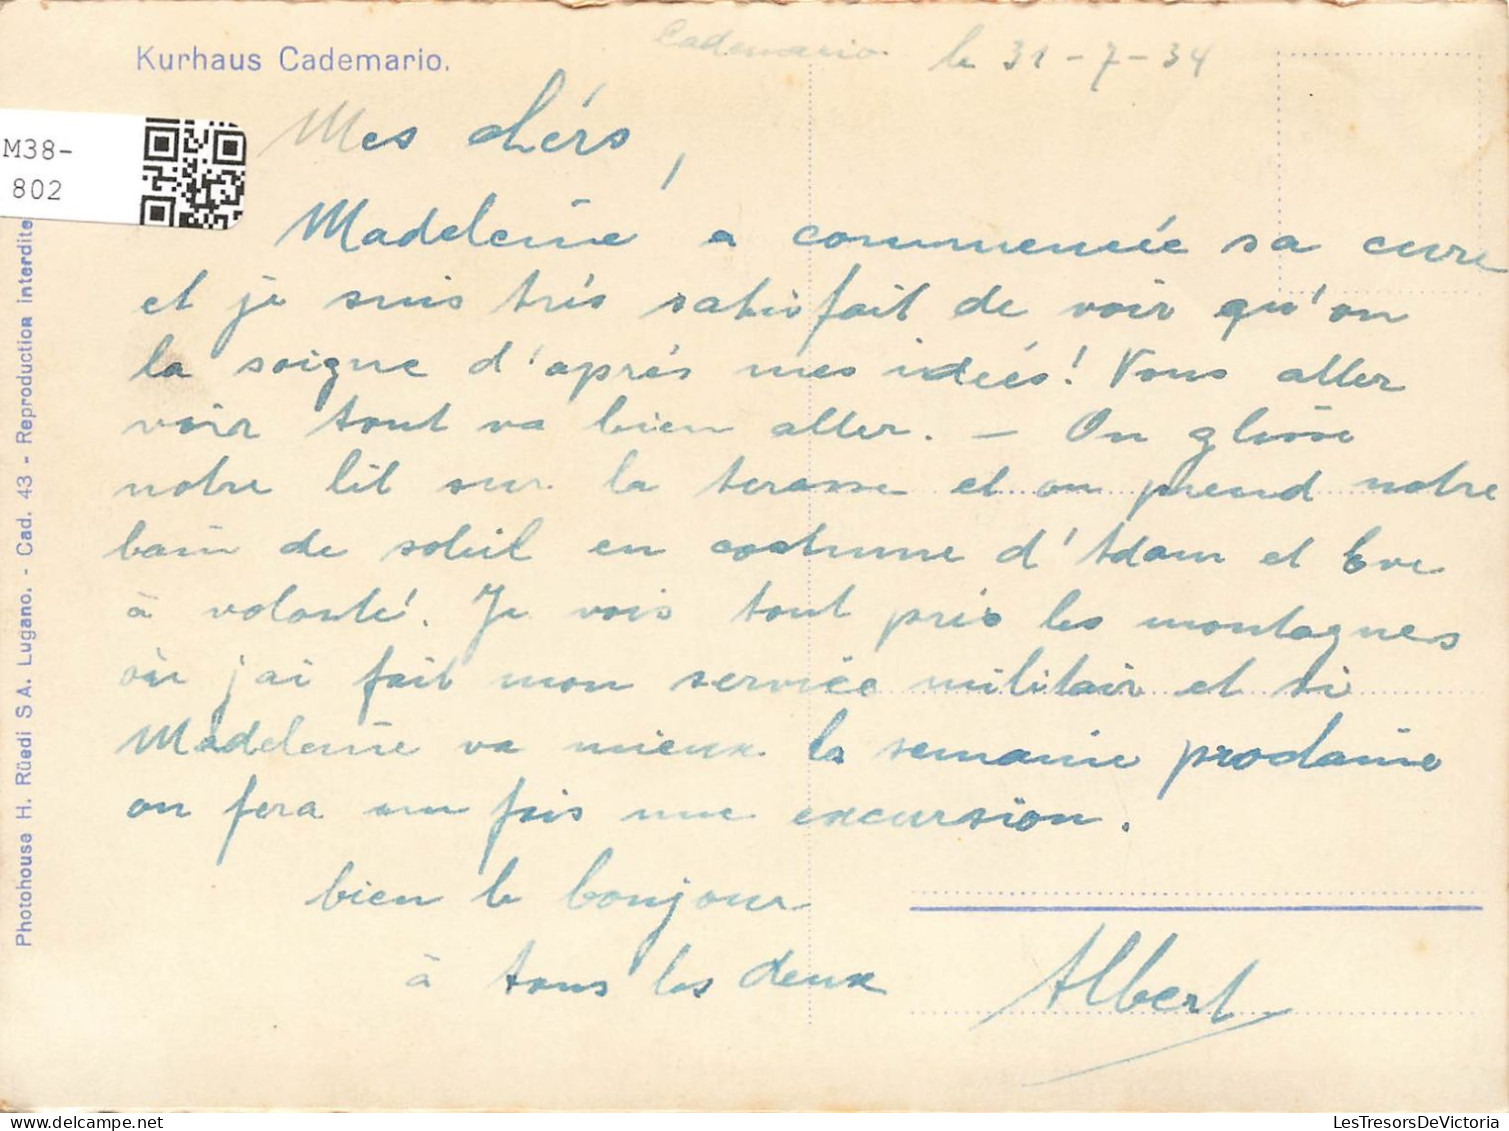 Kurhaus Cademario.
Cademario le 31-7-34
M38-
802
Mes chérs,
Madeleine a commencée sa cure
et je suis trés satisfait de voir qu'on
la soigne d'aprés mes idées! Vous aller
voir tout va bien aller. — On glisse
notre lit sur la terasse et on prend notre
bain de soleil en costume d'Adam et Eve
à volonté. Je vois tout prés les montagnes
où j'ai fait mon service militair et si
Madeleine va mieux la semaine prochaine
on fera un fois une excursion.
bien le bonjour
à tous les deux
Albert
Photohouse H. Rüedi S A. Lugano. - Cad. 43 - Reproduction interdite
LesTresorsDeVictoria